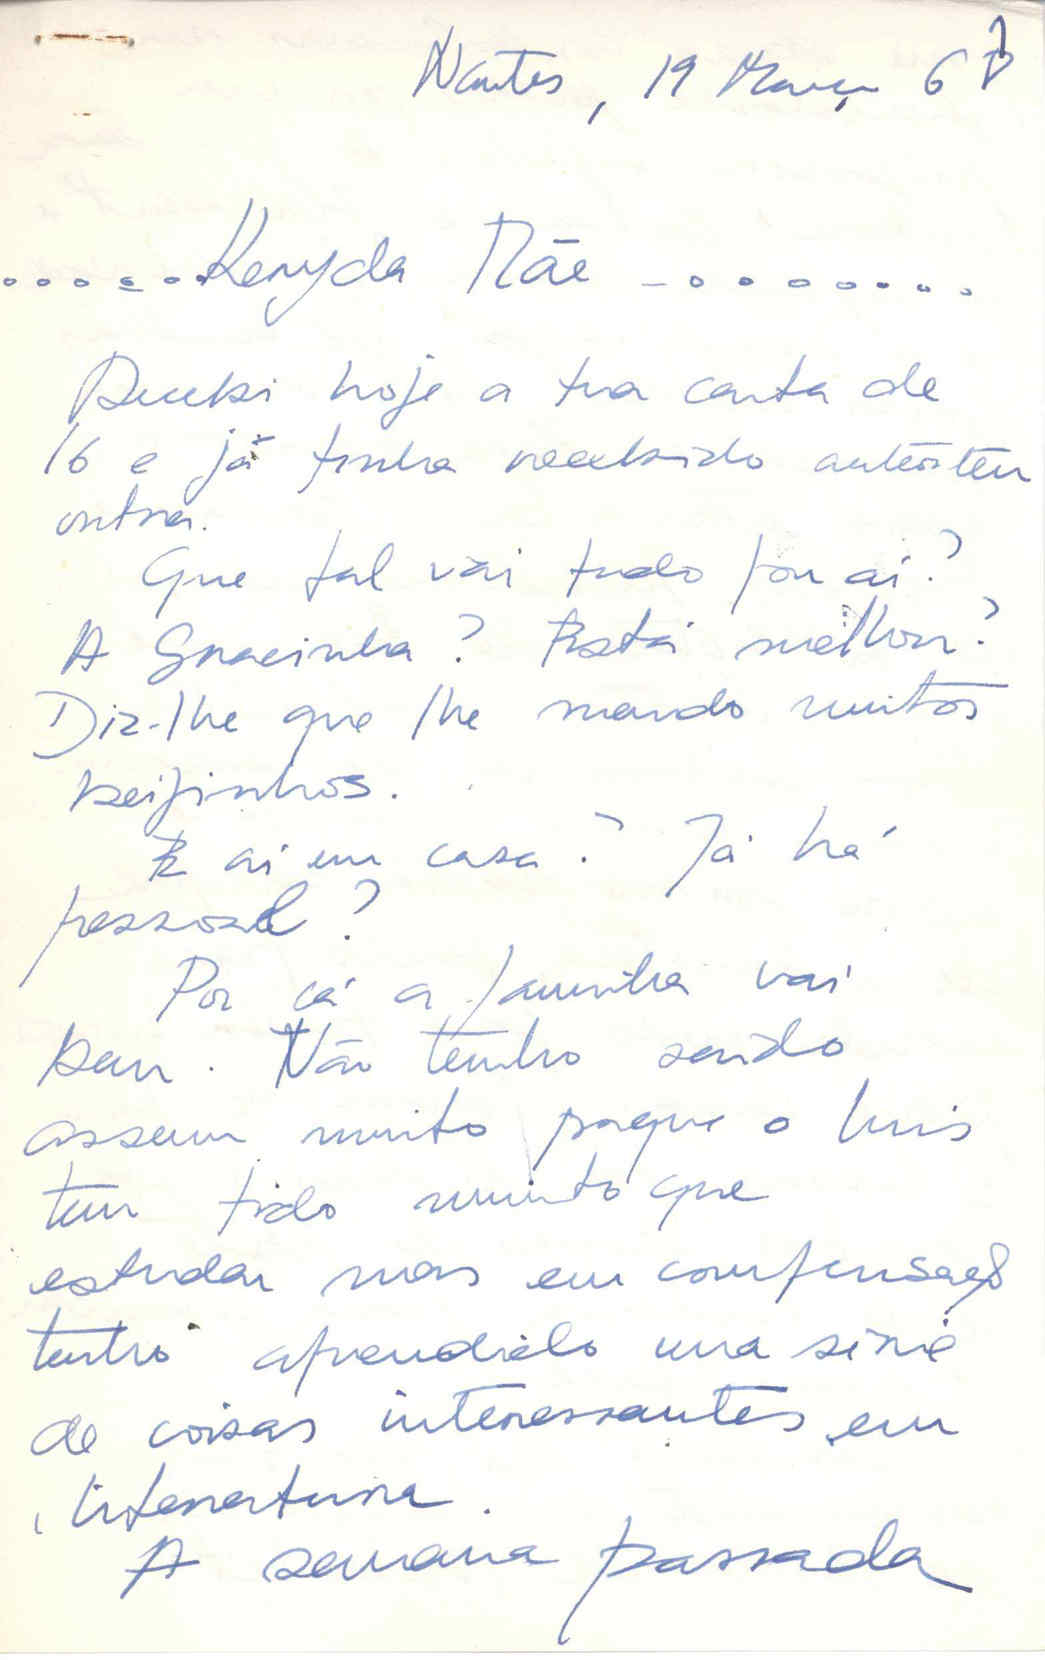 Nantes, 19 Março 67
......Keryda Mãe -........
Recebi hoje a tua carta de
16 e já tinha recebido anteontem
outra.
Que tal vai tudo por aí?
A Gracinha? Está melhor?
Diz-lhe que lhe mando muitos
beijinhos.
E aí em casa? Já há
pessoal?
Por cá a familia vai
bem. Não tenho saido
assim muito porque o Luis
tem tido muito que
estudar mas em compensação
tenho aprendido uma série
de coisas interessantes em
literatura.
A semana passada